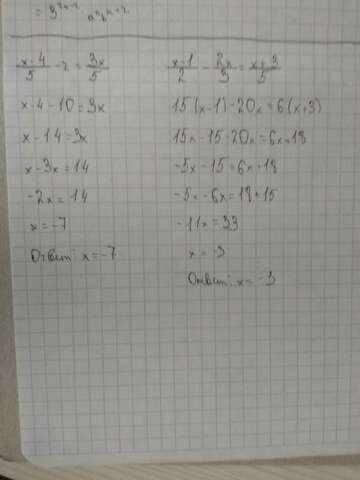 x-4/5 - 2 = 3x/5
x-4-10=3x
x-14=3x
x-3x=14
-2x=14
x=-7
Ответ: x=-7
x-1/2 - 2x/3 = x+3/5
15(x-1)-20x=6(x+3)
15x-15-20x=6x+18
-5x-15=6x+18
-5x-6x=18+15
-11x=33
x=-3
Ответ: x=-3